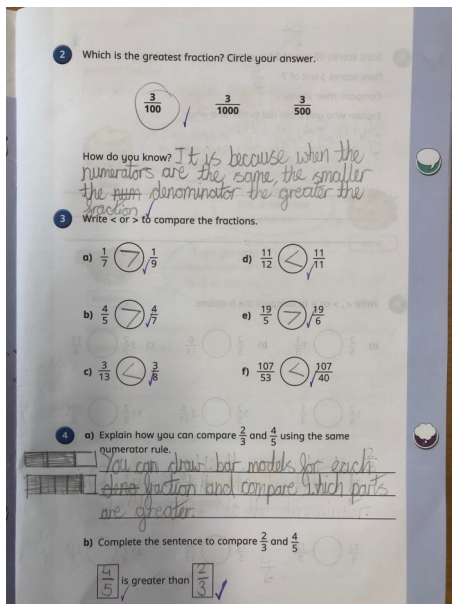 2 Which is the greatest fraction? Circle your answer.
3/100 3/1000 3/500
How do you know? It is because when the
numerators are the same, the smaller
the num denominator the greater the
fraction
3 Write < or > to compare the fractions.
a) 1/7 > 1/9 d) 11/12 < 11/11
b) 4/5 > 4/7 e) 19/5 > 19/6
c) 3/13 < 3/8 f) 107/53 < 107/40
4 a) Explain how you can compare 2/3 and 4/5 using the same
numerator rule.
You can draw bar models for each
fraction and compare which parts
are greater.
b) Complete the sentence to compare 2/3 and 4/5
4/5 is greater than 2/3